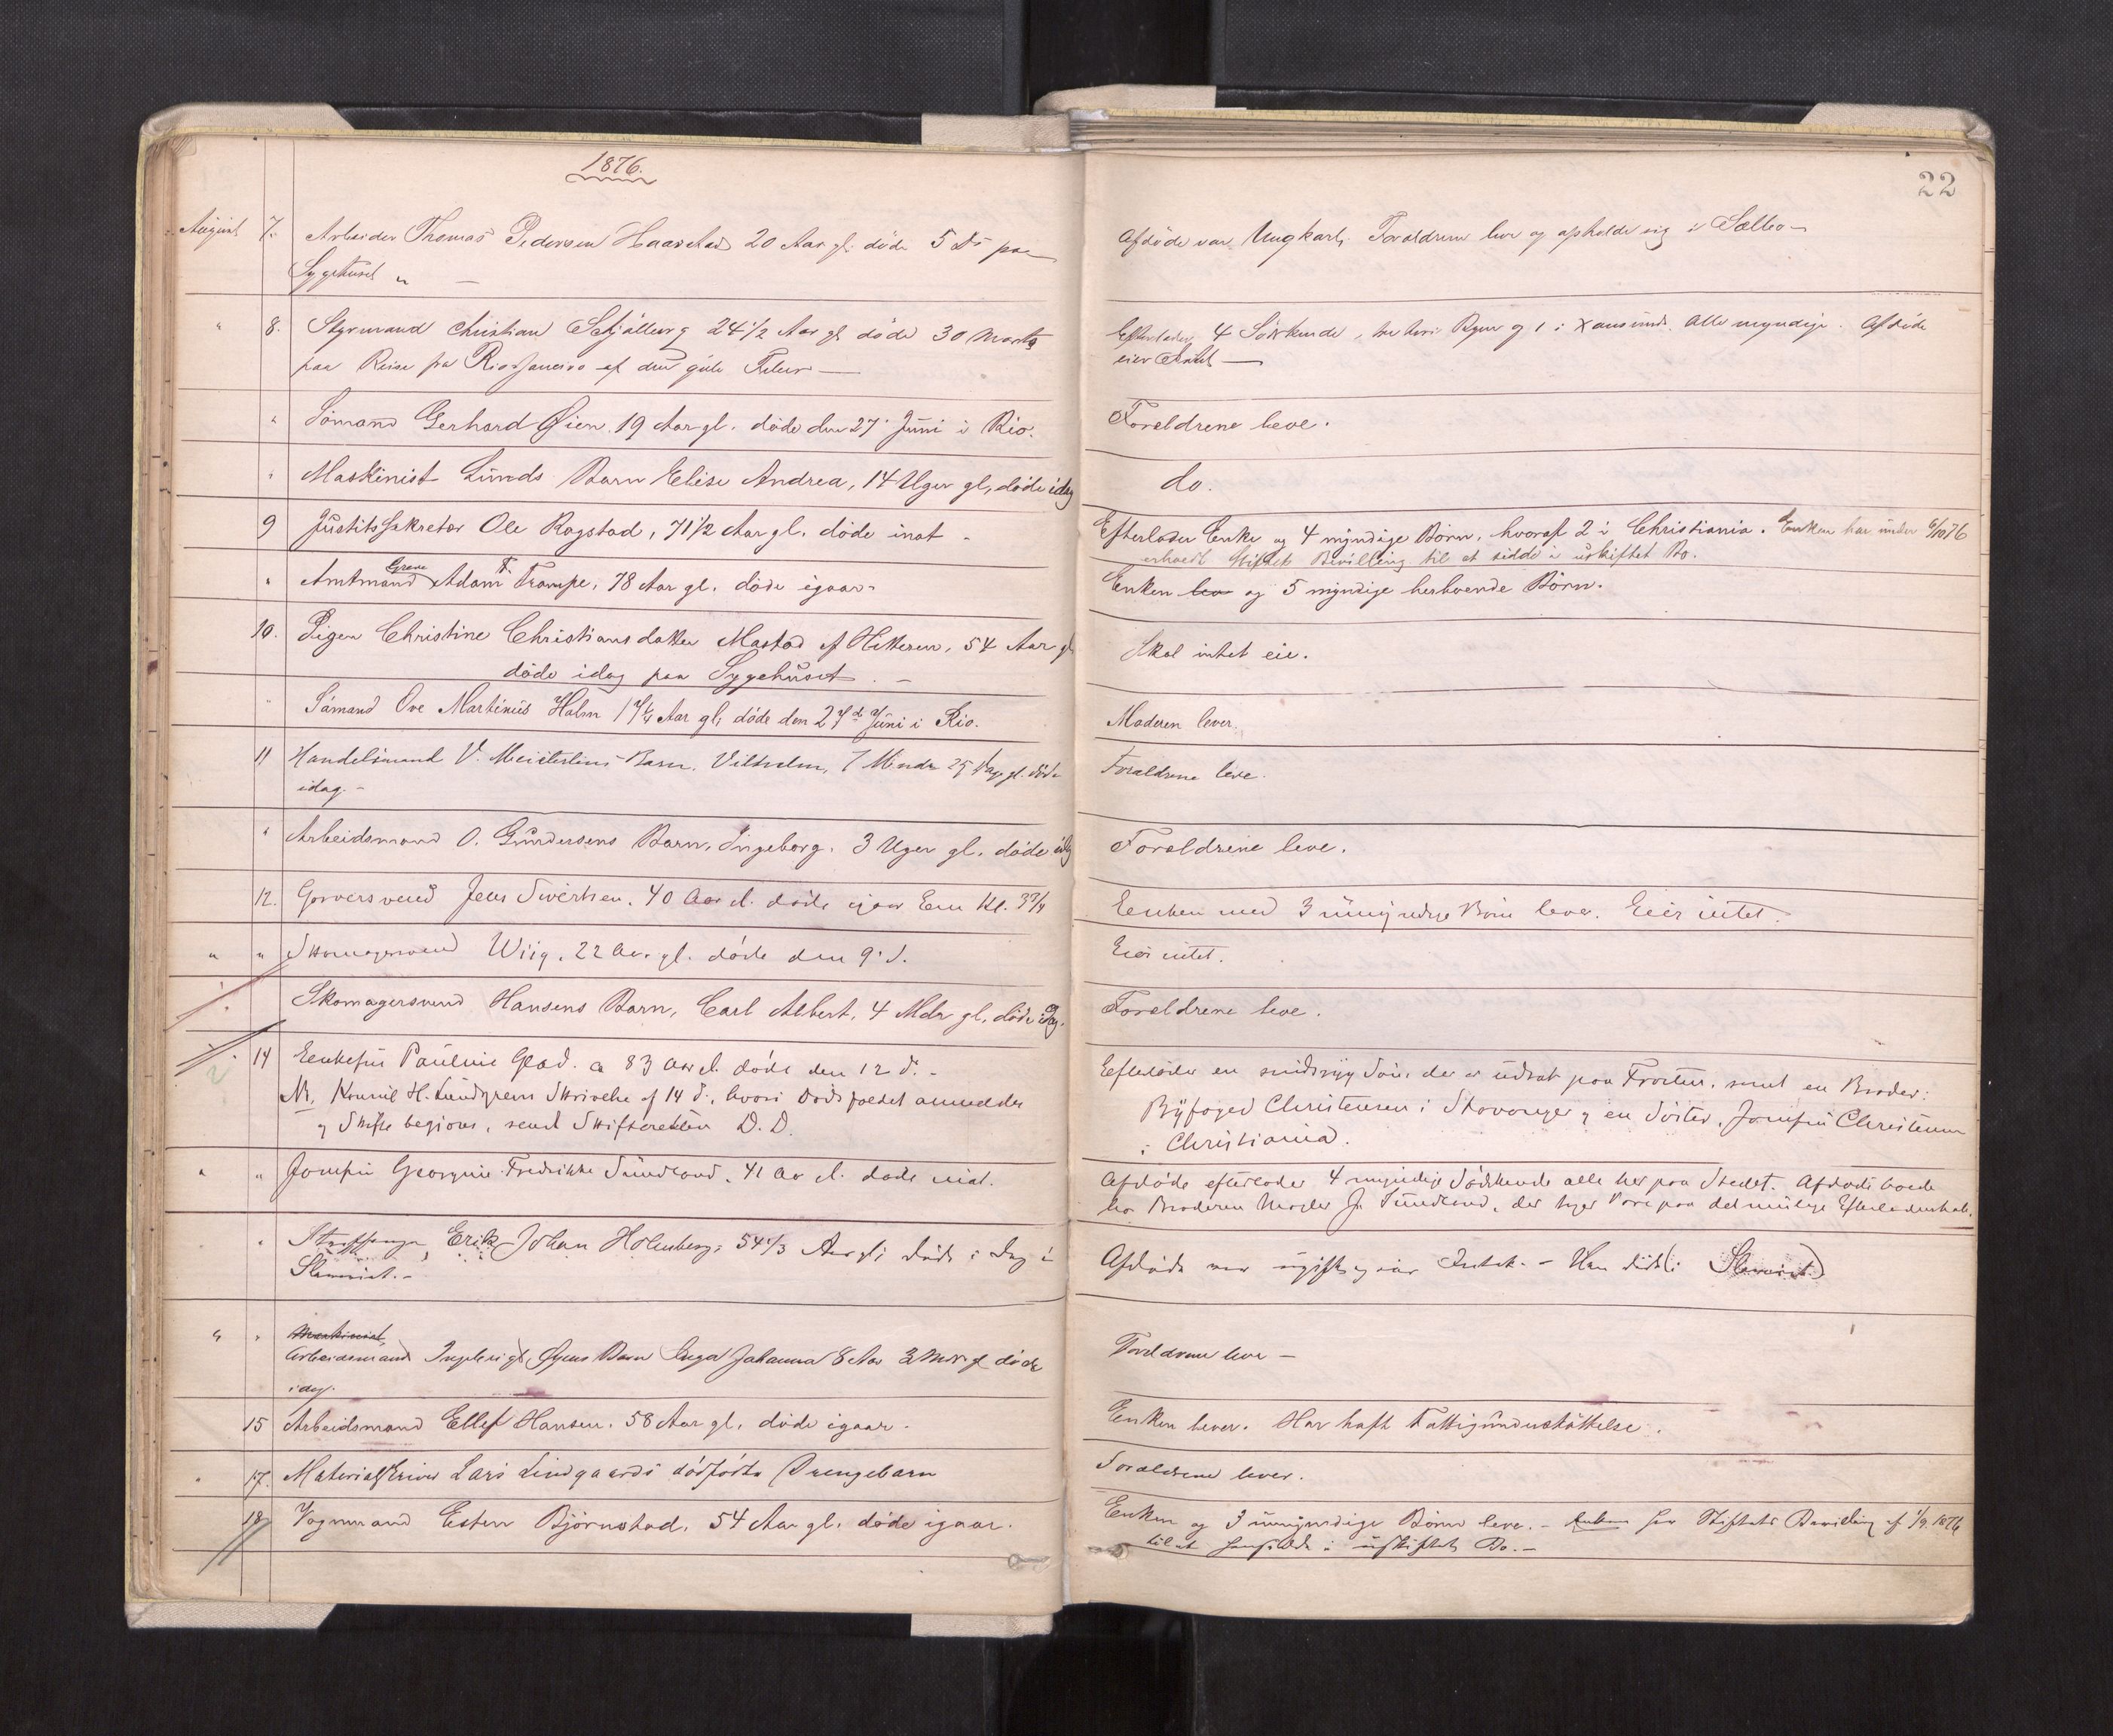 1876.
22
August 7. Arbeider Thomas Pedersen Haarstad 20 Aar gl. döde 5 ds paa
Sygehuset
Afdöde var Ungkarl. Forældrene leve og opholde sig i Sælbo
" 8. Styrmand Christian Schjölberg 24 1/2 Aar gl döde 30 Marts
paa Reise fra Rio Janeiro af den gule Feber
Efterlader 4 Södskende, tre her i Byen og 1 i Alle myndige. Afdöde
eier Intet
" Sömand Gerhard Øien 19 Aar gl. döde den 27 Juni i Rio.
Forældrene leve.
" Maskinist Lunds Barn Elise Andrea, 14 Uger gl, döde idag
do.
9 Justitssekretær Ole Rogstad, 71 1/2 Aar gl. döde inat
Efterlader Enke og 4 myndige Børn, hvoraf 2 i Christiania. Enken har under 6/10 76
erholdt Stiftets Bevilling til at sidde i uskiftet Bo.
" Amtmand Greve Adam F. Trampe, 78 Aar gl. döde igaar
Enken lever og 5 myndige herboende Börn.
10. Pigen Christine Christiansdatter Mastad af Hitteren, 54 Aar gl
döde idag paa Sygehuset.
Skal intet eie.
" Sömand Ove Martinius Holm 17 1/4 Aar gl, döde den 27de Juni i Rio.
Moderen lever.
11 Handelsmand V. Meisterlins Barn, Vilhelm, 7 Mndr 25 Dage gl. döde
idag.
Forældrene leve.
" Arbeidsmand O. Gundersens Barn, Ingeborg, 3 Uger gl. döde idag
Forældrene leve.
12. Garversvend Jens Sivertsen, 40 Aar gl. döde igaar Em Kl. 3 3/4
Enken med 3 umyndige Börn lever. Eier intet.
" " Skomagersvend Wiig, 22 Aar gl. döde den 9. d.
Eier intet.
Skomagersvend Hansens Barn, Carl Albert, 4 Mdr gl, döde idag.
Forældrene leve.
14 Enkefru Pauline Glad. a 83 Aar gl. döde den 12 d.
Nb. Konsul H. Lundgrens Skrivelse af 14 d., hvori Dödsfaldet anmeldes
og Skifte begjæres, sendt Skifteretten D. D.
Efterlader en sindssyg Sön, der er udsat paa Frosten, samt en Broder:
Byfoged Christensen i Stavanger og en Söster, Jomfru Christensen
i Christiania.
" " Jomfru Georgine Fredrikke Sundland, 41 Aar gl. döde inat.
Afdöde efterlader 4 myndige Södskende alle her paa Stedet. Afdöde boede
hos Broderen Mægler Sundland, der tager Vare paa det mulige Efterladenskab.
" Straffange, Erik Johan Holmberg, 54 1/3 Aar gl; döde i Dag i
Slaveriet.
Afdöde var ugift og eier Intet. - Han döde (i Slaveriet.)
" " Maskinist
Arbeidsmand Ingebrigt Øyens Barn Inga Johanna 8 Aar 3 Mdr gl döde
idag.
Forældrene leve
15 Arbeidsmand Ellef Hansen. 58 Aar gl, döde igaar.
Enken lever. Har haft Fattigunderstöttelse.
" 17. Materialskriver Lars Lindgaards dödfödte Drengebarn
Forældrene lever.
18 Vognmand Esten Björnstad, 54 Aar gl. döde igaar.
Enken og 3 umyndige Börn leve. - Enken har Stiftets Bevilling af 1/9. 1876
til at hensidde i uskiftet Bo.